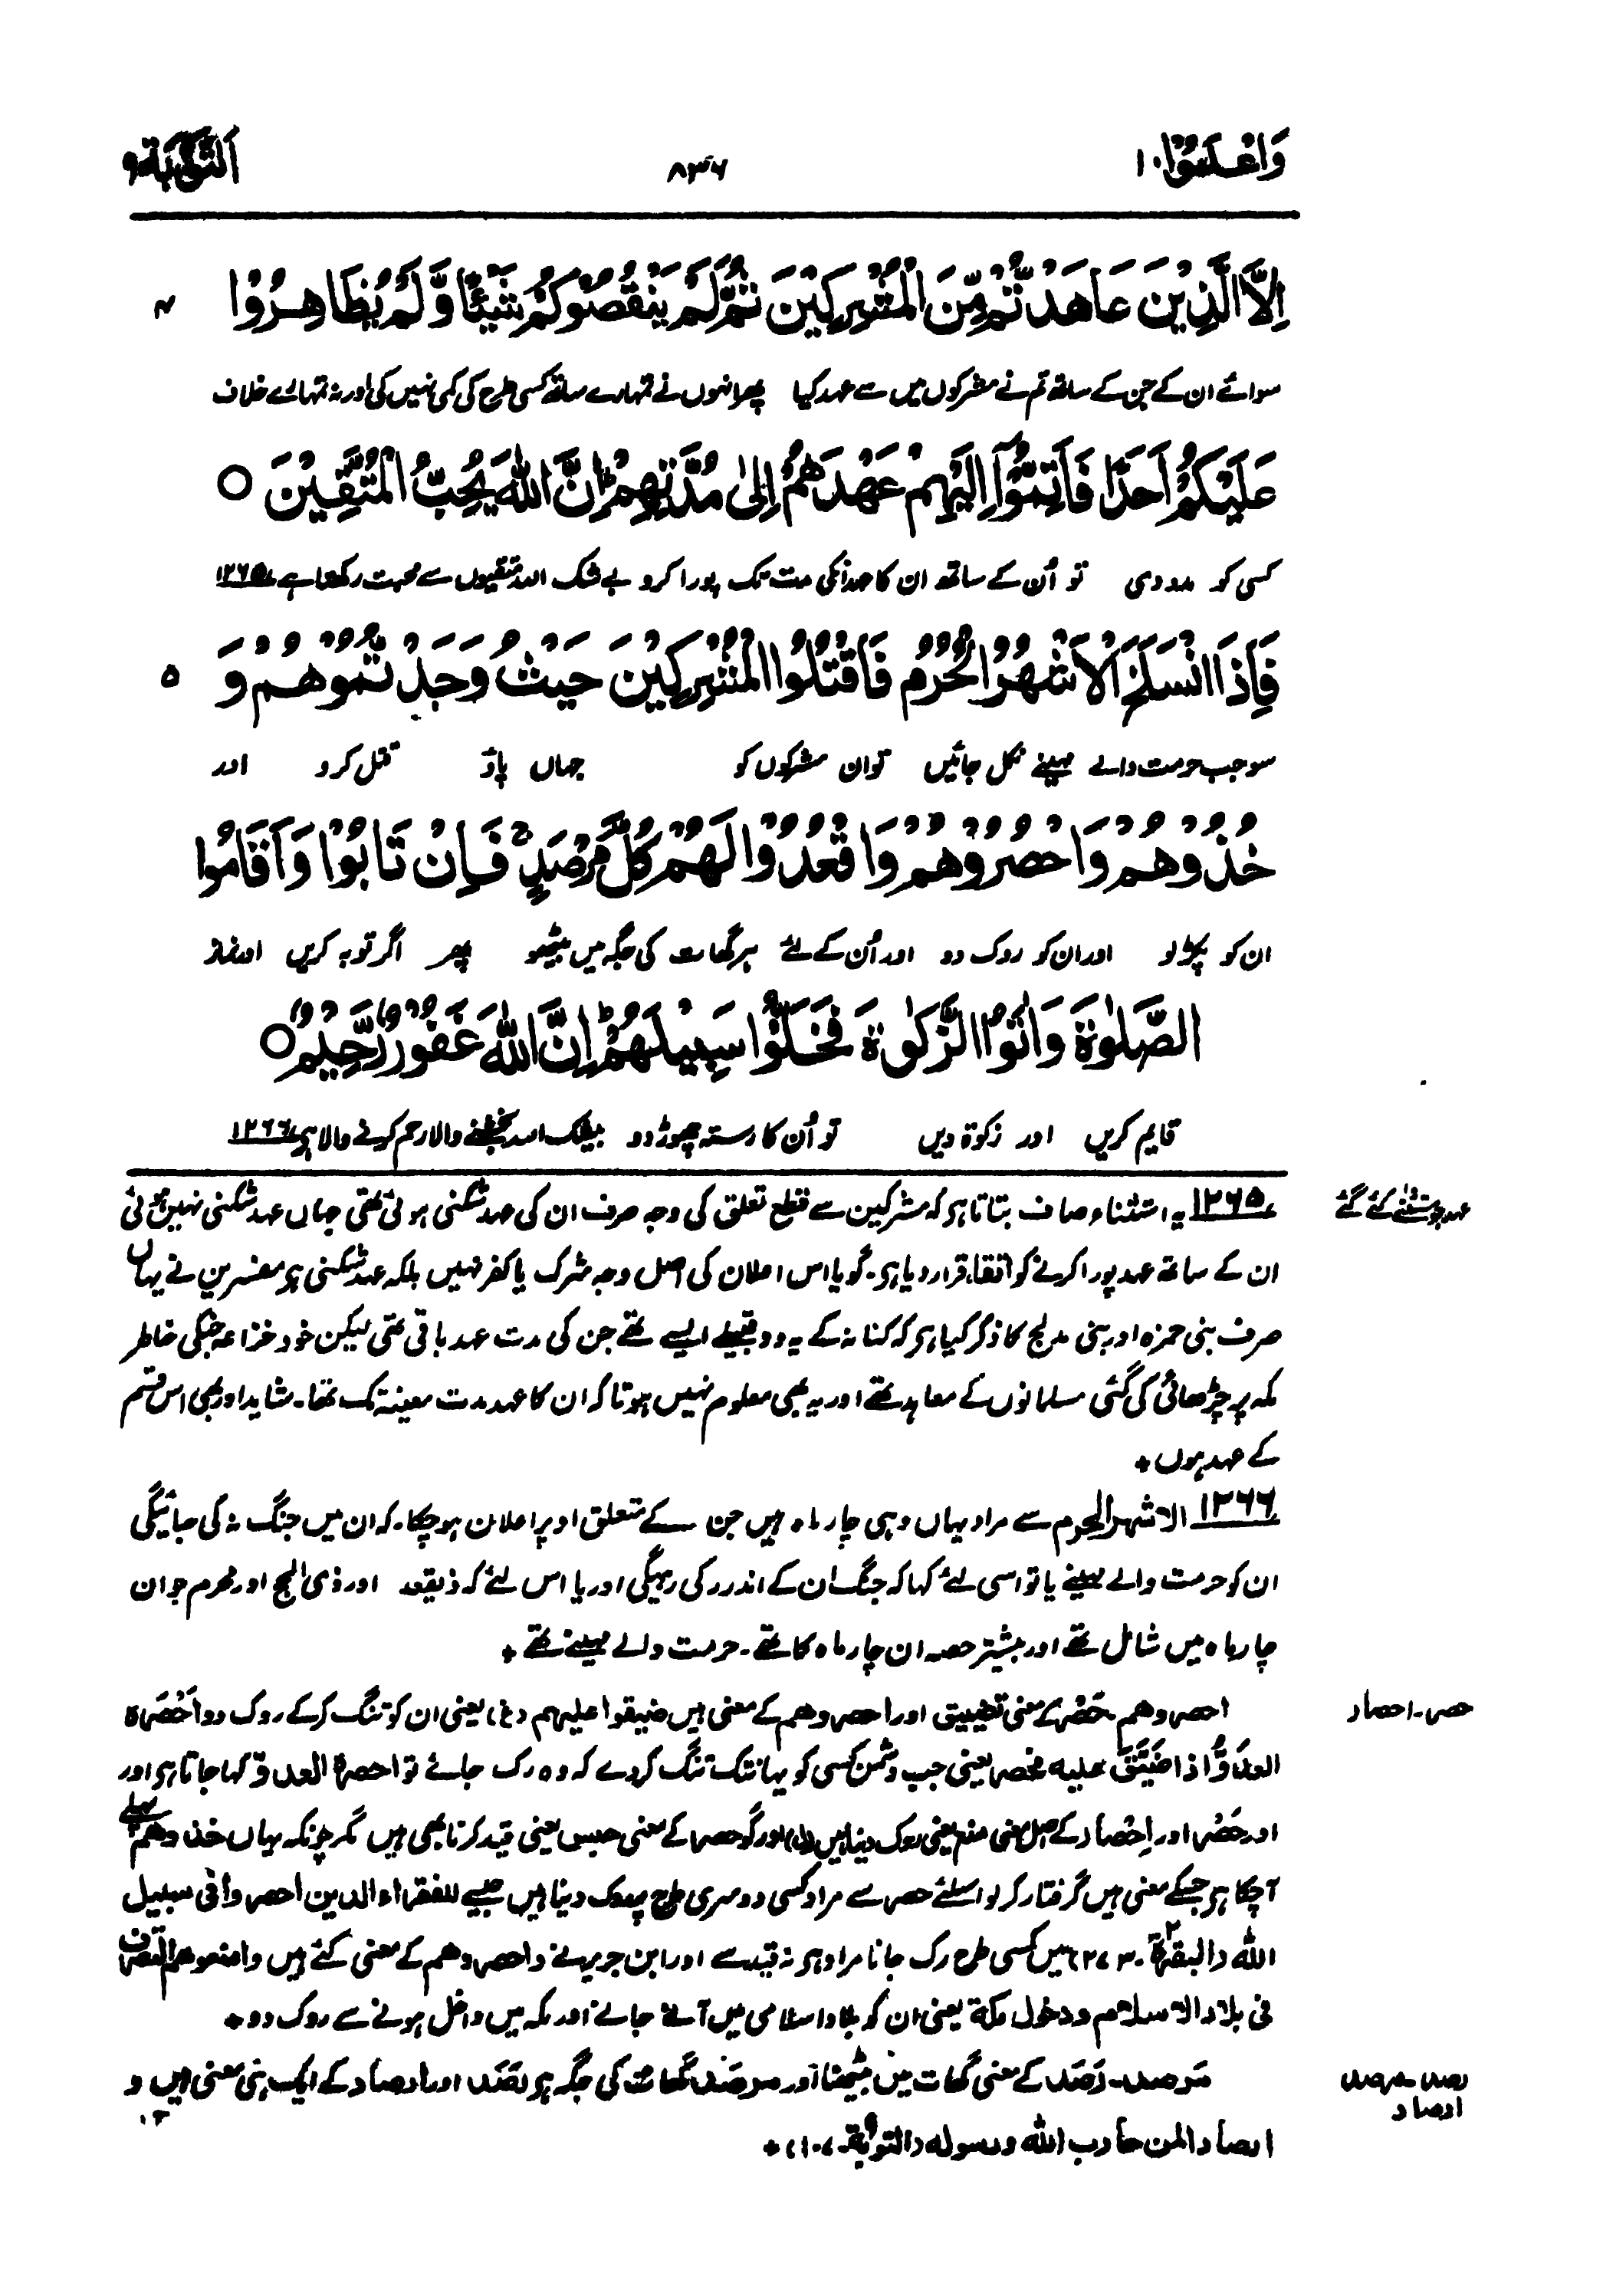 وَاعْلَمُوْٓا ١٠ ٨٣٦ اَلتَّوْبَة ٩
اِلَّا الَّذِيْنَ عَاهَدْتُّمْ مِّنَ الْمُشْرِكِيْنَ ثُمَّ لَمْ يَنْقُصُوْكُمْ شَيْـًٔا وَّلَمْ يُظَاهِرُوْا ٤
سوائے ان کے جن کے ساتھ تم نے مشرکوں میں سے عہد کیا پھر انہوں نے تمہارے ساتھ کسی طرح کی کمی نہیں کی اور نہ تمہارے خلاف
عَلَيْكُمْ اَحَدًا فَاَتِمُّوْٓا اِلَيْهِمْ عَهْدَهُمْ اِلٰى مُدَّتِهِمْ ؕ اِنَّ اللّٰهَ يُحِبُّ الْمُتَّقِيْنَ ○
کسی کو مدد دی تو اُن کے ساتھ ان کا عہد انکی مدت تک پورا کرو بے شک اللہ متقیوں سے محبت رکھتا ہے ١٢٦٥
فَاِذَا انْسَلَخَ الْاَشْهُرُ الْحُرُمُ فَاقْتُلُوا الْمُشْرِكِيْنَ حَيْثُ وَجَدْتُّمُوْهُمْ وَ ٥
سو جب حرمت والے مہینے نکل جائیں تو ان مشرکوں کو جہاں پاؤ قتل کرو اور
خُذُوْهُمْ وَاحْصُرُوْهُمْ وَاقْعُدُوْا لَهُمْ كُلَّ مَرْصَدٍ ۚ فَاِنْ تَابُوْا وَاَقَامُوا
ان کو پکڑ لو اور ان کو روک دو اور اُن کے لئے ہر گھات کی جگہ میں بیٹھو پھر اگر توبہ کریں اور نماز
الصَّلٰوةَ وَاٰتَوُا الزَّكٰوةَ فَخَلُّوْا سَبِيْلَهُمْ ؕ اِنَّ اللّٰهَ غَفُوْرٌ رَّحِيْمٌ ○
قایم کریں اور زکوۃ دیں تو اُن کا رستہ چھوڑ دو بیشک اللہ بخشنے والا رحم کرنے والا ہی ١٢٦٦
١٢٦٥ یہ استثناء صاف بتاتا ہی کہ مشرکین سے قطع تعلق کی وجہ صرف ان کی عہد شکنی ہوئی تھی جہاں عہد شکنی نہیں ہوئی
عہد جو مستثنےٰ کئے گئے
ان کے ساتھ عہد پورا کرنے کو اتقا قرار دیا ہی۔ گویا اس اعلان کی اصل وجہ شرک یا کفر نہیں بلکہ عہد شکنی ہی مفسرین نے یہاں
صرف بنی حمزہ اور بنی مدلج کا ذکر کیا ہی کہ کنانہ کے یہ دو قبیلے ایسے تھے جن کی مدت عہد باقی تھی لیکن خود خزاعہ جنکی خاطر
مکہ پر چڑھائی کی گئی مسلمانوں کے معاہد تھے اور یہ بھی معلوم نہیں ہوتا کہ ان کا عہد مدت معینہ تک تھا۔ شاید اور بھی اس قسم
کے عہد ہوں +
١٢٦٦ الاشہر الحرم سے مراد یہاں وہی چار ماہ ہیں جن کے متعلق اوپر اعلان ہو چکا۔ کہ ان میں جنگ نہ کی جائیگی
ان کو حرمت والے مہینے یا تو اسی لئے کہا کہ جنگ ان کے اندر رکی رہیگی اور یا اس لئے کہ ذیقعد اور ذی الحج اور محرم جو ان
چار ماہ میں شامل تھے اور بیشتر حصہ ان چار ماہ کا تھے۔ حرمت والے مہینے تھے +
احصروهم۔ حَصْر کے معنی تضییق اور احصروهم کے معنی ہیں ضیقوا علیهم (غ) یعنی ان کو تنگ کرکے روک دو اَحْصَرَهٗ
حصر۔ احصار
العدوُّ اذا ضَیَّقَ علیه فحصر یعنی جب دشمن کسی کو یہانتک تنگ کردے کہ وہ رک جائے تو احصرهٗ العدوّ کہا جاتا ہی اور
اور حَصْر اور اِحْصار کے اصل معنی منع یعنی روک دینا ہیں (ل) اور گو حصر کے معنی حبس یعنی قید کرنا بھی ہیں مگر چونکہ یہاں خذوهم پہلے
آچکا ہی جسکے معنی ہیں گرفتار کرلو اسلئے حصر سے مراد کسی دوسری طرح پر روک دینا ہیں جیسے للفقراء الذین احصروا فی سبیل
الله (البقرة ٢۔ ٢٧٣) میں کسی طرح رک جانا مراد ہی نہ قید سے اور ابن جریر نے واحصروهم کے معنی کئے ہیں وامنعوهم التصرف
فی بلاد الاسلام ودخول مكة یعنی ان کو بلاد اسلامی میں آنے جانے اور مکہ میں داخل ہونے سے روک دو +
مَرصد۔ رَصَد کے معنی گھات میں بیٹھنا اور مرصد گھات کی جگہ ہی رَصَد اور ارصاد کے ایک ہی معنی ہیں و
رصد۔ مرصد
ارصاد
ارصادا لمن حارب الله ورسوله (التوبة ٩۔ ١٠٧) +